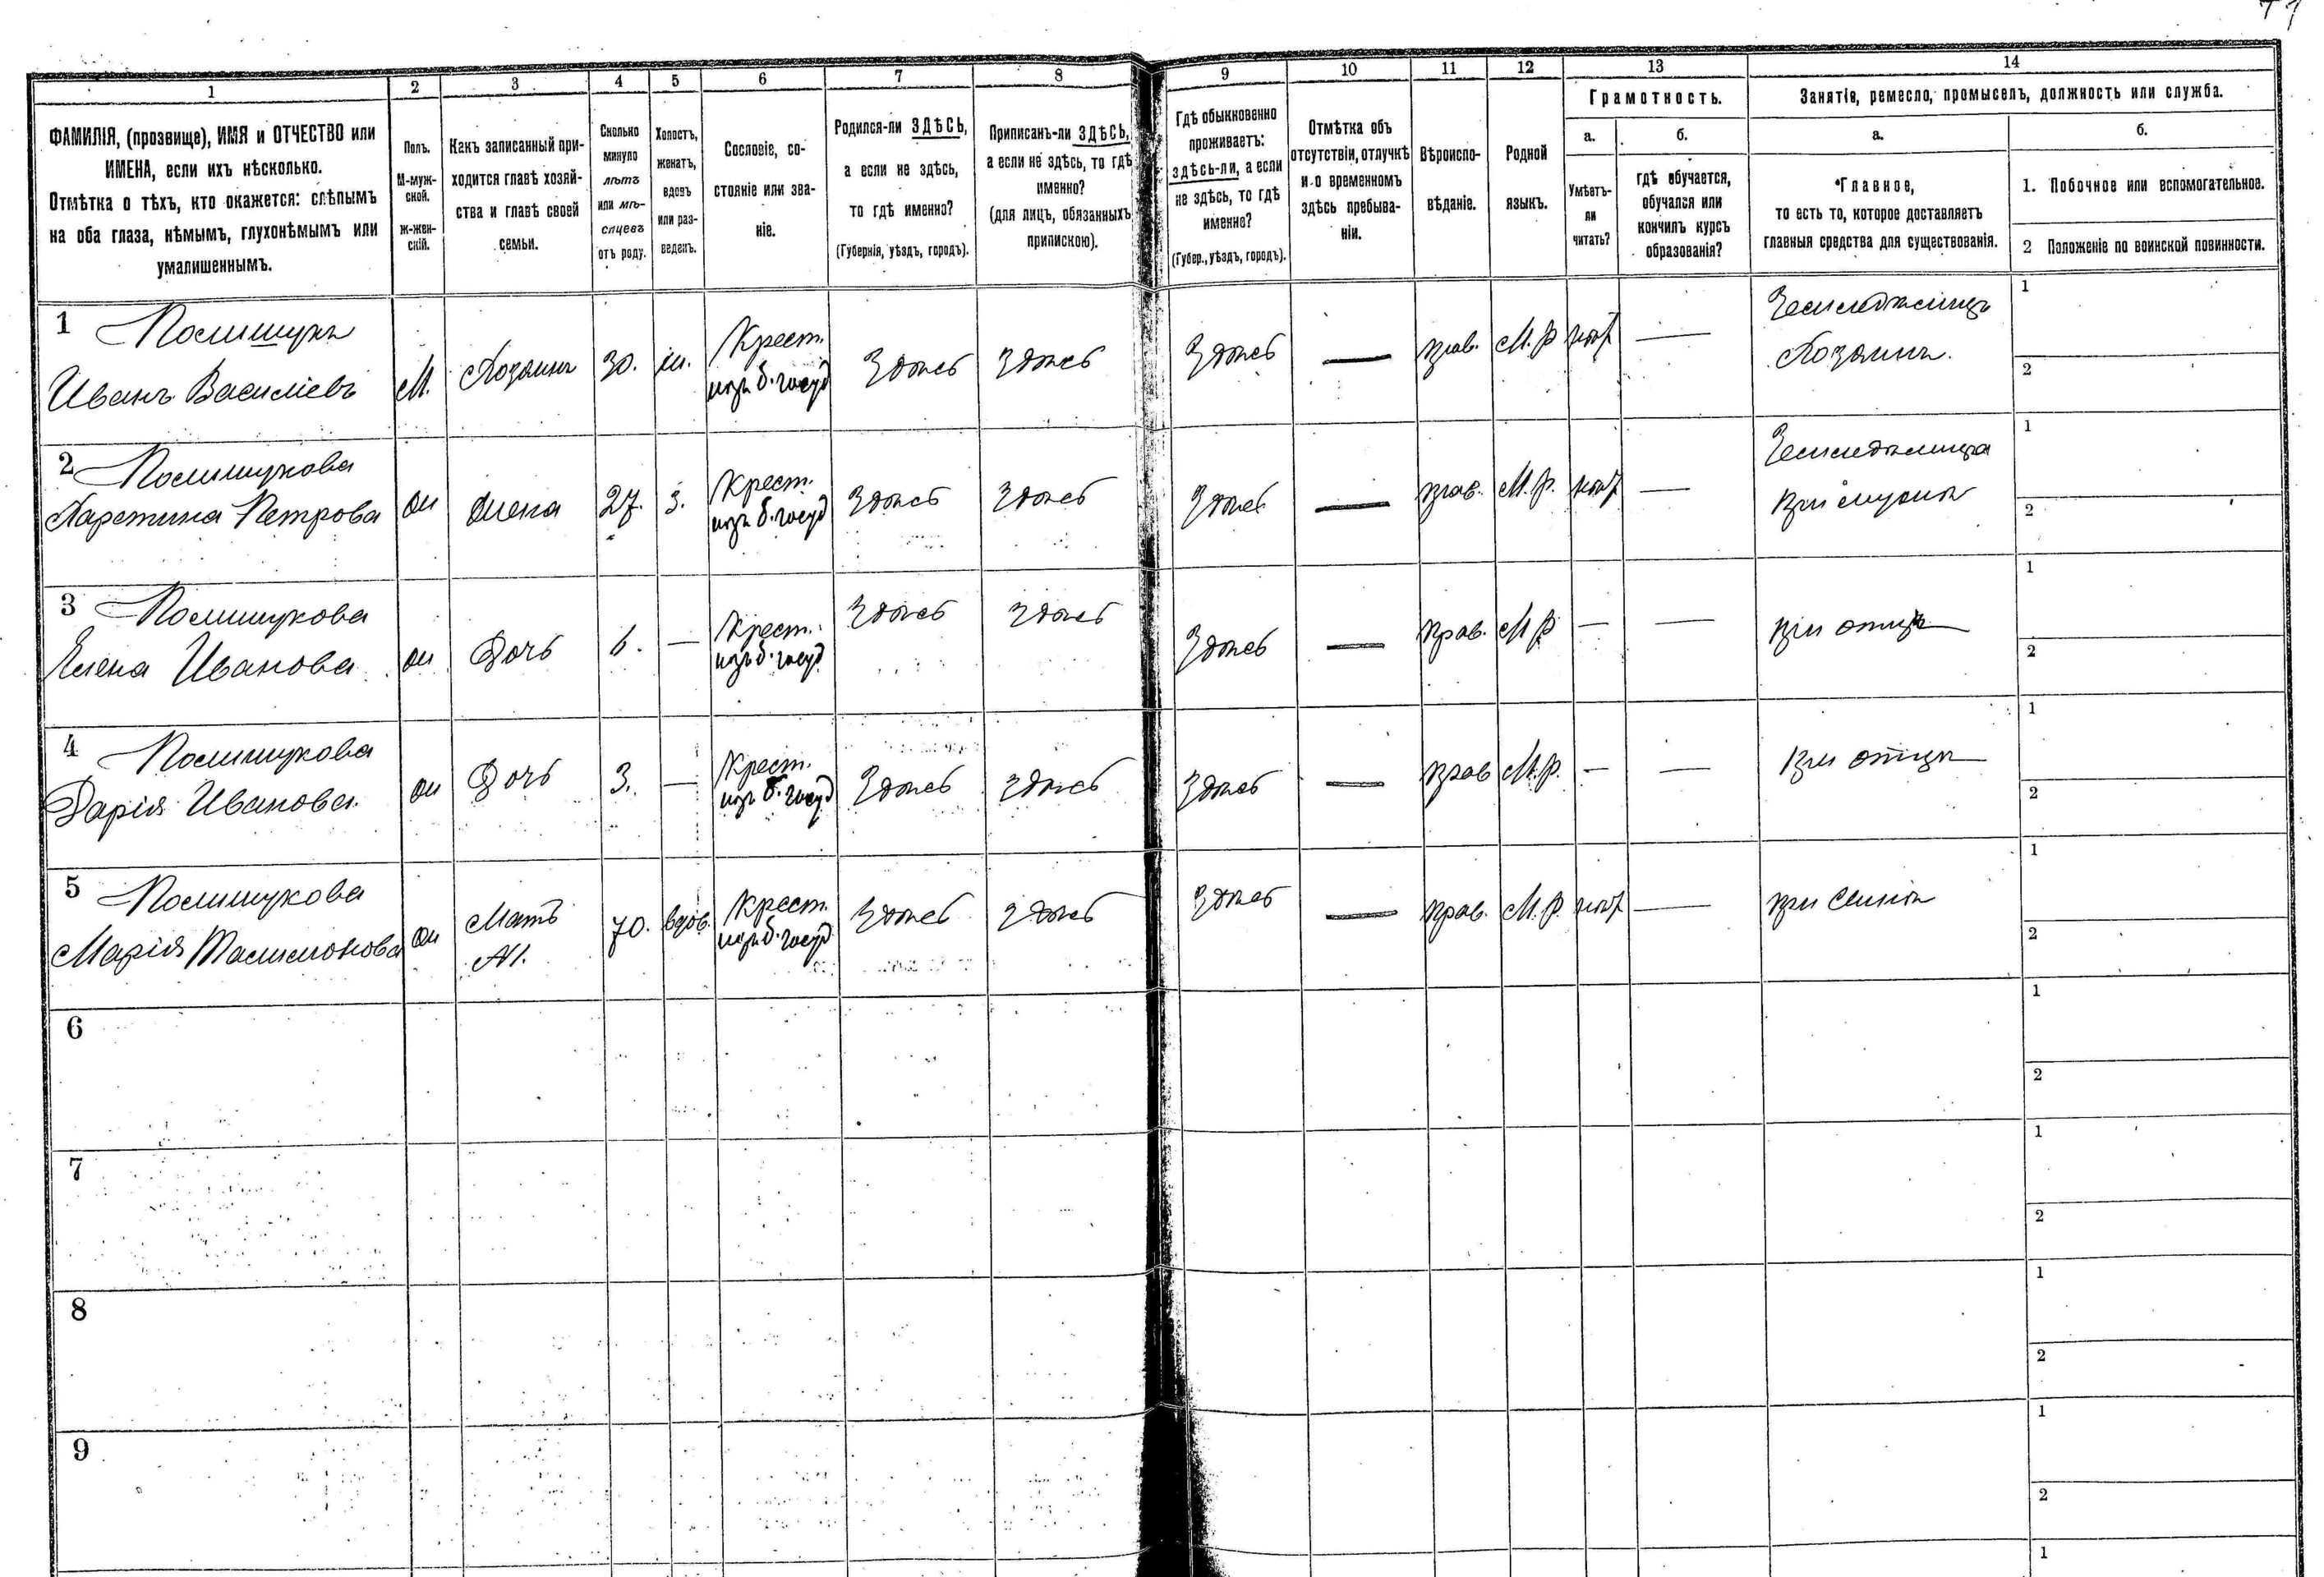 1 2 3 4 5 6 7 8 9 10 11 12 13 14
ФАМИЛІЯ, (прозвище), ИМЯ и ОТЧЕСТВО или
ИМЕНА, если ихъ нѣсколько.
Отмѣтка о тѣхъ, кто окажется: слѣпымъ
на оба глаза, нѣмымъ, глухонѣмымъ или
умалишеннымъ.
Полъ.
М-муж-
ской.
ж-жен-
скій.
Какъ записанный при-
ходится главѣ хозяй-
ства и главѣ своей
семьи.
Сколько
минуло
лѣтъ
или мѣ-
сяцевъ
отъ роду.
Холостъ,
женатъ,
вдовъ
или раз-
веденъ.
Сословіе, со-
стояніе или зва-
ніе.
Родился-ли ЗДѢСЬ,
а если не здѣсь,
то гдѣ именно?
(Губернія, уѣздъ, городъ).
Приписанъ-ли ЗДѢСЬ,
а если не здѣсь, то гдѣ
именно?
(для лицъ, обязанныхъ
припискою).
Гдѣ обыкновенно
проживаетъ:
здѣсь-ли, а если
не здѣсь, то гдѣ
именно?
(Губер., уѣздъ, городъ).
Отмѣтка объ
отсутствіи, отлучкѣ
и о временномъ
здѣсь пребыва-
ніи.
Вѣроиспо-
вѣданіе.
Родной
языкъ.
Грамотность.
а.
Умѣетъ-
ли
читать?
б.
гдѣ обучается,
обучался или
кончилъ курсъ
образованія?
Занятія, ремесло, промыселъ, должность или служба.
а.
Главное,
то есть то, которое доставляетъ
главныя средства для существованія.
б.
1. Побочное или вспомогательное.
2 Положеніе по воинской повинности.
1 Полищукъ
Иванъ Василіевъ
М.
Хозяинъ
30.
ж.
Крест.
изъ б. госуд
Здѣсь
Здѣсь
Здѣсь
—
прав.
М. Р.
нѣт
—
Земледѣлецъ
Хозяинъ.
1
2
2 Полищукова
Харетина Петрова
ж
жена
27.
з.
Крест.
изъ б. госуд
Здѣсь
Здѣсь
Здѣсь
—
прав.
М. Р.
нѣт
—
Земледѣлица
при мужѣ
1
2
3 Полищукова
Елена Иванова
ж
Дочь
6.
—
Крест.
изъ б. госуд
Здѣсь
Здѣсь
Здѣсь
—
прав.
М. Р.
—
—
при отцѣ
1
2
4 Полищукова
Дарія Иванова.
ж
Дочь
3.
—
Крест.
изъ б. госуд
Здѣсь
Здѣсь
Здѣсь
—
прав
М. Р.
—
—
при отцѣ
1
2
5 Полищукова
Марія
ж
Мать
70.
вдов.
Крест.
изъ б. госуд
Здѣсь
Здѣсь
Здѣсь
—
прав.
М. Р.
нѣт
—
при сынѣ
1
2
6
1
2
7
1
2
8
1
2
9
1
2
1